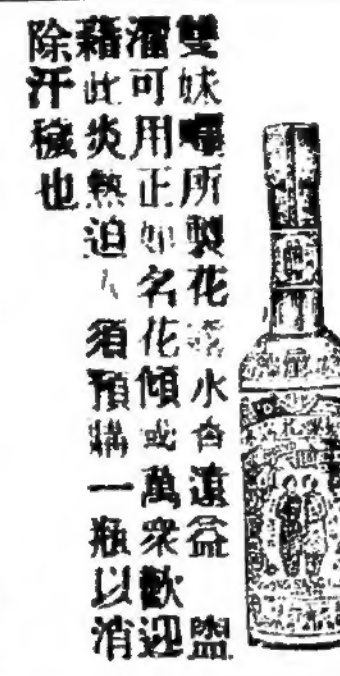 雙妹嚜所製花露水香遠益盥
濯可用正如名花傾或萬衆歡迎
藉此炎熱迫人須預購一瓶以消
除汗穢也